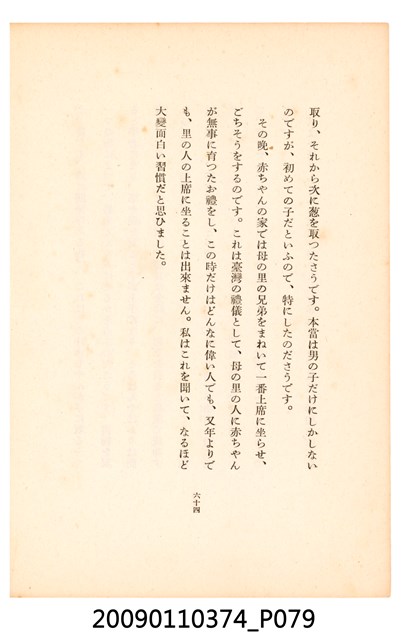 取り、それから次に葱を取つたさうです。本當は男の子だけにしかしない
のですが、初めての子だといふので、特にしたのださうです。
その晩、赤ちやんの家では母の里の兄弟をまねいて一番上席に坐らせ、
ごちそうをするのです。これは臺灣の禮儀として、母の里の人に赤ちやん
が無事に育つたお禮をし、この時だけはどんなに偉い人でも、又年よりで
も、里の人の上席に坐ることは出來ません。私はこれを聞いて、なるほど
大變面白い習慣だと思ひました。
六十四
20090110374_P079